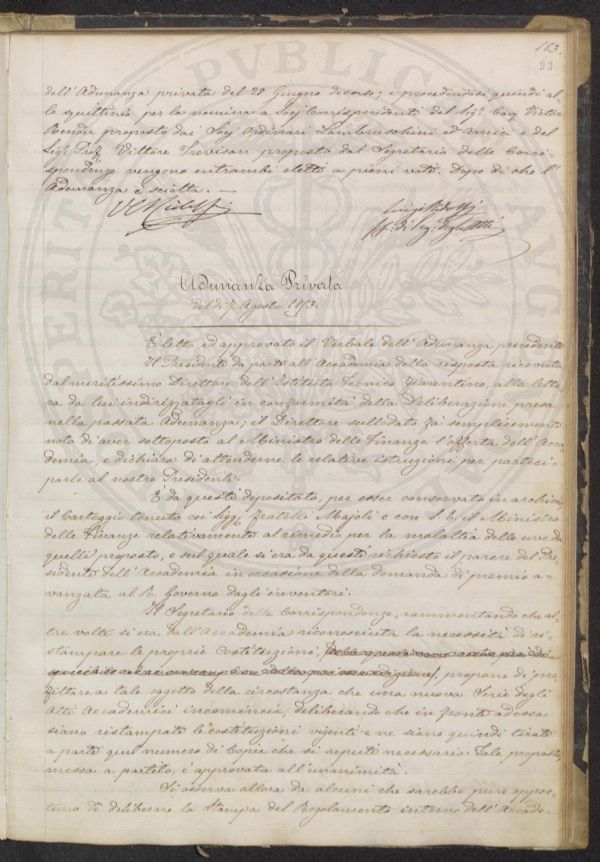 183.
93
dell'Adunanza privata del 28 Giugno decorso; e procedendosi quindi al-
lo squittinio per la nomina a Socj Corrispondenti del Sigr. Cav. Victor
Rendu proposto dai Socj Ordinari Lambruschini ed Amici e del
Sigr. Prof. Vittore Trevisan proposto dal Segretario delle Corri-
spondenze vengono entrambi eletti a pieni voti. Dopo di che l'
Adunanza è sciolta. —
Adunanza Privata
del dì 7. Agosto 1873.
È letto ed approvato il Verbale dell'Adunanza precedente
Il Presidente dà parte all'Accademia della risposta ricevuta
dal meritissimo Direttore dell'Istituto Tecnico Fiorentino, alla lette-
ra da lui indirizzatagli in conformità della Deliberazione presa
nella passata Adunanza; il Direttore sullodato fa semplicemente
noto di aver sottoposto al Ministro delle Finanze l'offerta dell'Acca-
demia e dichiara di attenderne le relative istruzioni per parteci-
parle al nostro Presidente.
È da questo depositato, per esser conservato in archivio,
il Carteggio tenuto coi Sigg. Fratelli Majoli e con S. E. il Ministro
delle Finanze relativamente al rimedio per la malattia delle uve da
quelli proposto, e sul quale si era da questo richiesto il parere del Pre-
sidente dell'Accademia in occasione della domanda di premio a-
vanzata al R. Governo dagli inventori.
Il Segretario delle Corrispondenze, rammentando che al-
tre volte si era dall'Accademia riconosciuta la necessità di ri-
stampare le proprie Costituzioni, propone di pro-
fittare a tale oggetto della circostanza che una nuova Serie degli
Atti Accademici incomincia, deliberando che in fronte ad essa
siano ristampate le costituzioni vigenti e ne siano quindi tirate
a parte quel numero di Copie che si reputi necessario. Tale proposta,
messa a partito, è approvata all'unanimità.
Si osserva allora da alcuni che sarebbe pure oppor-
tuno di deliberare la Stampa del Regolamento interno dell'Accade-